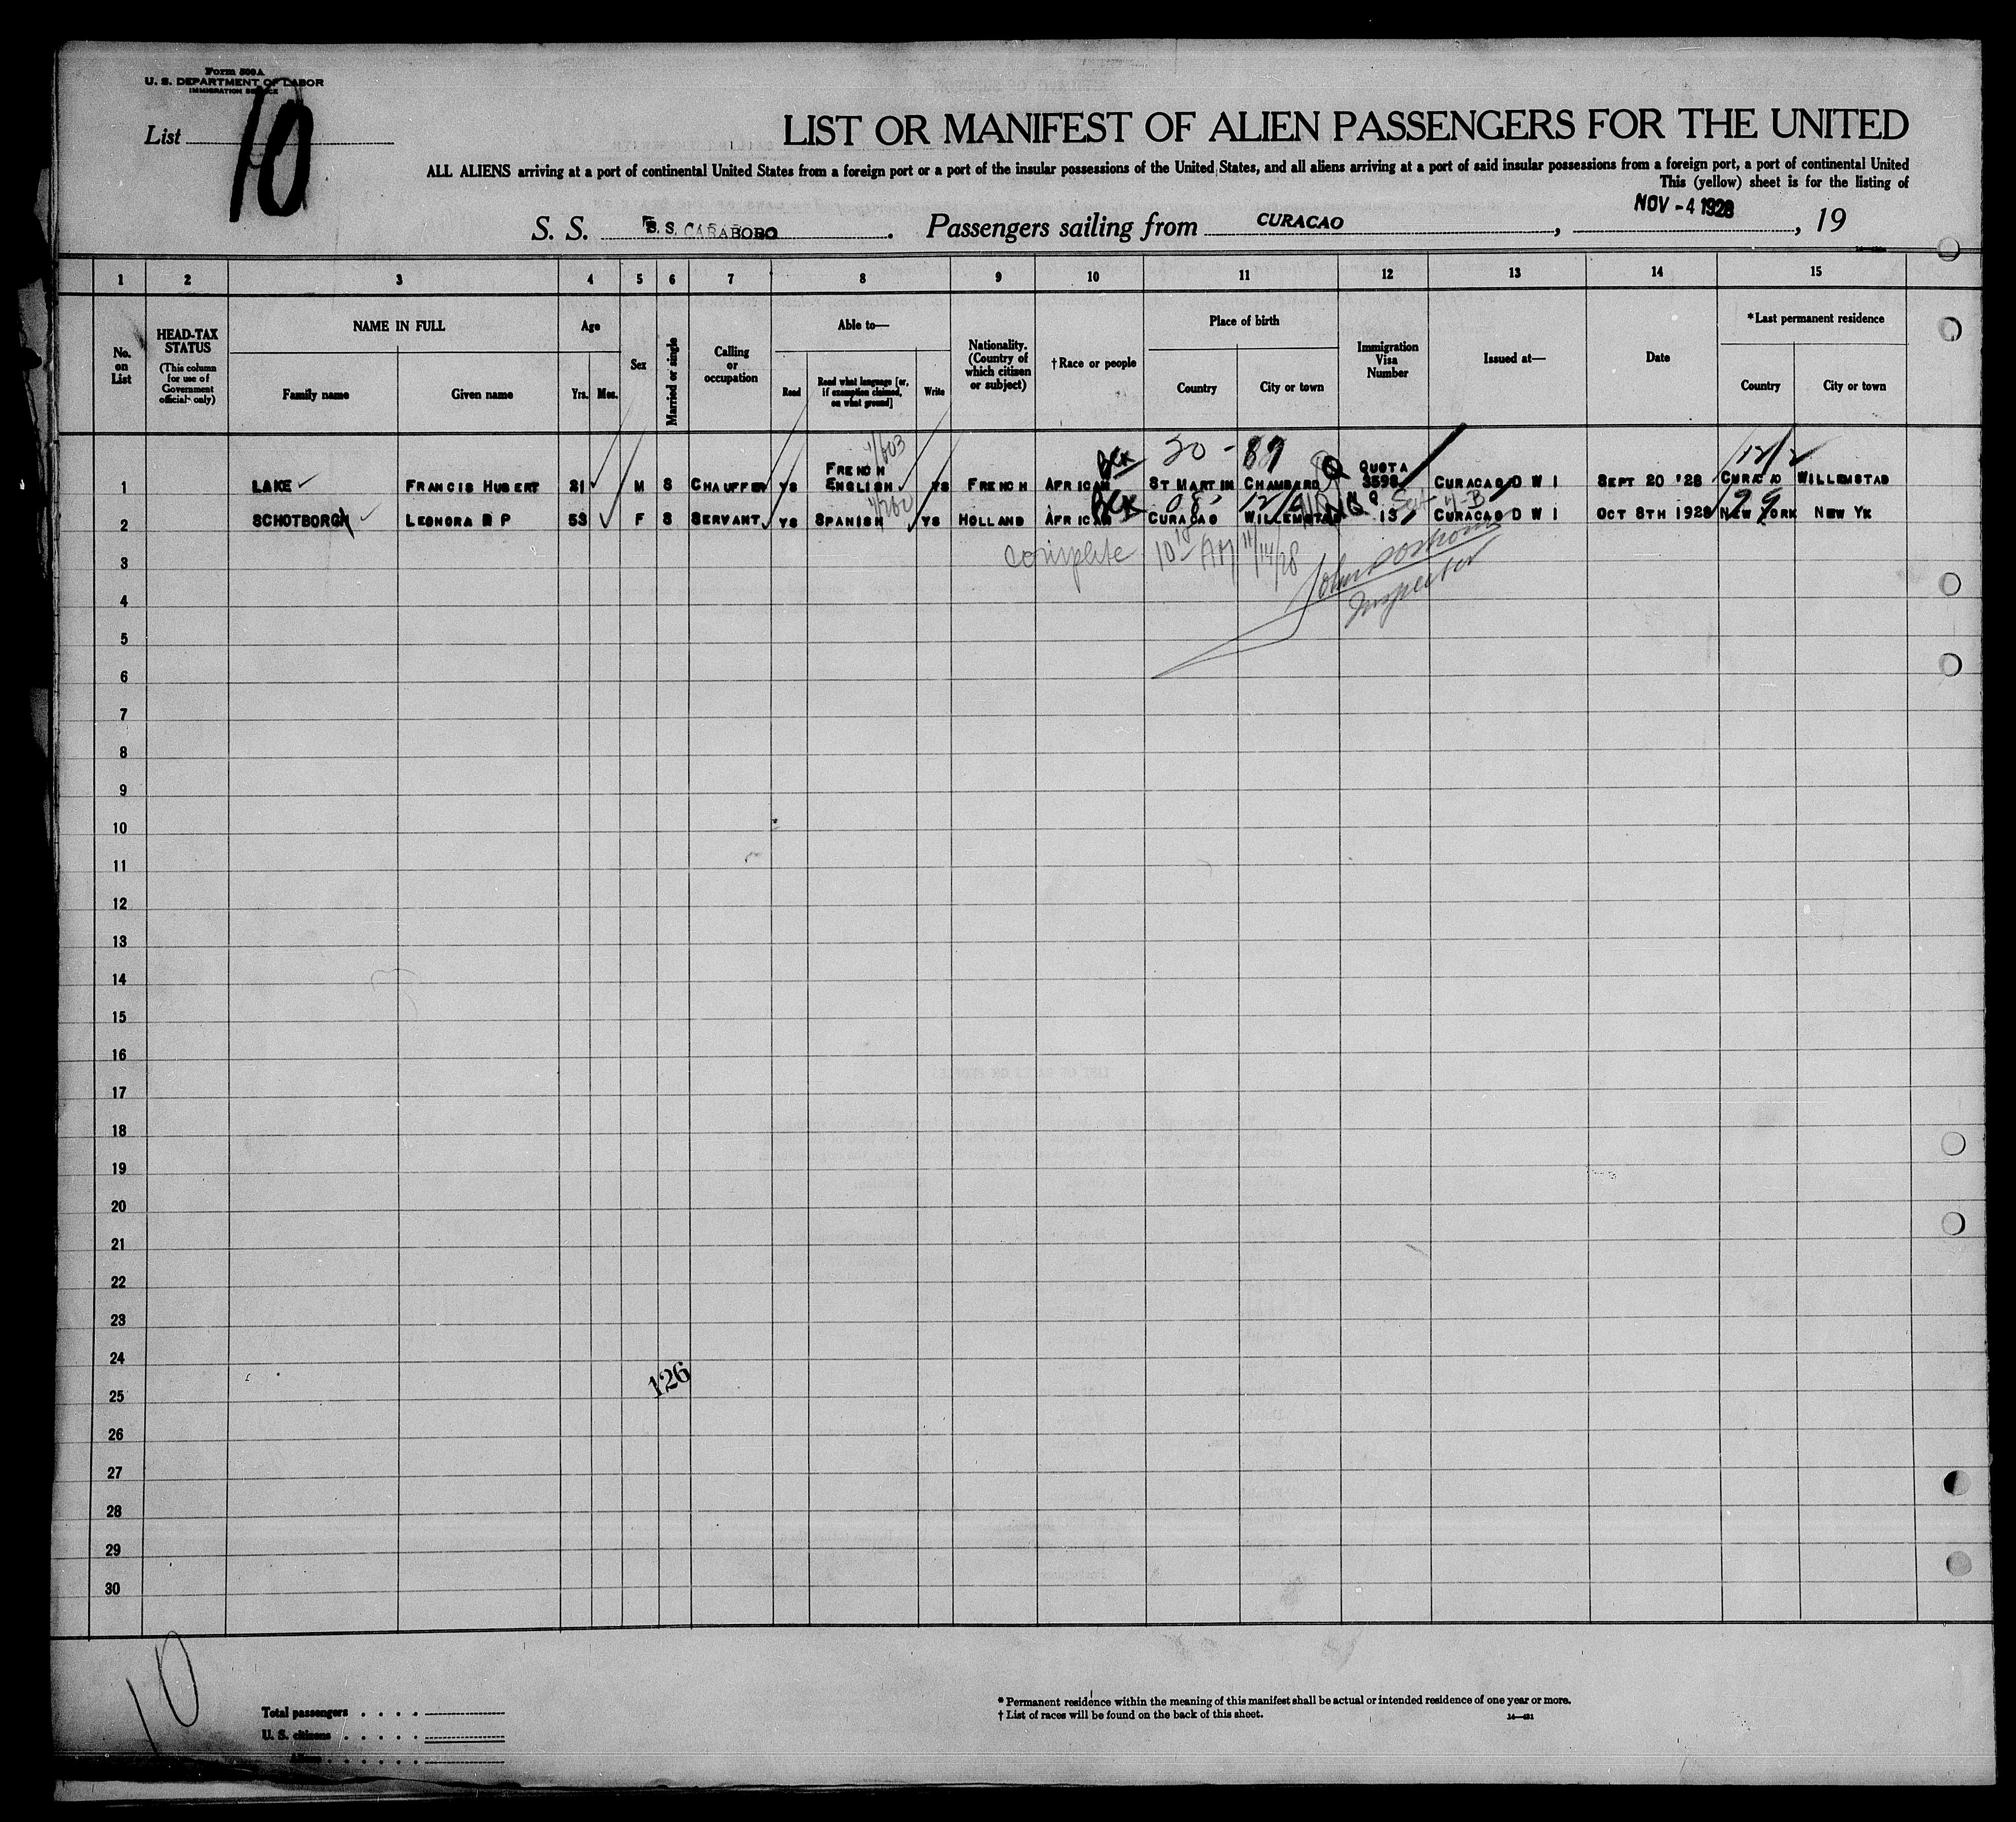 Form 500A
U. S. DEPARTMENT OF LABOR
IMMIGRATION SERVICE
List 10
LIST OR MANIFEST OF ALIEN PASSENGERS FOR THE UNITED
ALL ALIENS arriving at a port of continental United States from a foreign port or a port of the insular possessions of the United States, and all aliens arriving at a port of said insular possessions from a foreign port, a port of continental United
This (yellow) sheet is for the listing of
S. S. S. S. CARABOBO. Passengers sailing from CURACAO, NOV - 4 1928, 19
1 2 3 4 5 6 7 8 9 10 11 12 13 14 15
No. on List
HEAD-TAX STATUS
(This column for use of Government officials only)
NAME IN FULL
Family name
Given name
Age
Yrs. Mos.
Sex
Married or single
Calling or occupation
Able to—
Read
Read what language [or, if exemption claimed, on what ground]
Write
Nationality. (Country of which citizen or subject)
†Race or people
Place of birth
Country
City or town
Immigration Visa Number
Issued at—
Date
*Last permanent residence
Country
City or town
20 - 89
1 LAKE FRANCIS HUBERT 21 M S CHAUFFER YS FRENCH ENGLISH YS FRENCH AFRICAN BCK ST MARTIN CHAMBARD QUOTA 3598 CURACAO D W I SEPT 20 '28 CURACAO WILLEMSTAD
2 SCHOTBORGH LEONORA R P 53 F S SERVANT YS SPANISH YS HOLLAND AFRICAN BCK CURACAO WILLEMSTAD N Q 13 CURACAO D W I OCT 8TH 1928 NEW YORK NEW YK
complete 10 AM 11/14/28
Inspector
3
4
5
6
7
8
9
10
11
12
13
14
15
16
17
18
19
20
21
22
23
24
126
25
26
27
28
29
30
10
Total passengers
U. S. citizens
Aliens
* Permanent residence within the meaning of this manifest shall be actual or intended residence of one year or more.
† List of races will be found on the back of this sheet.
14—431